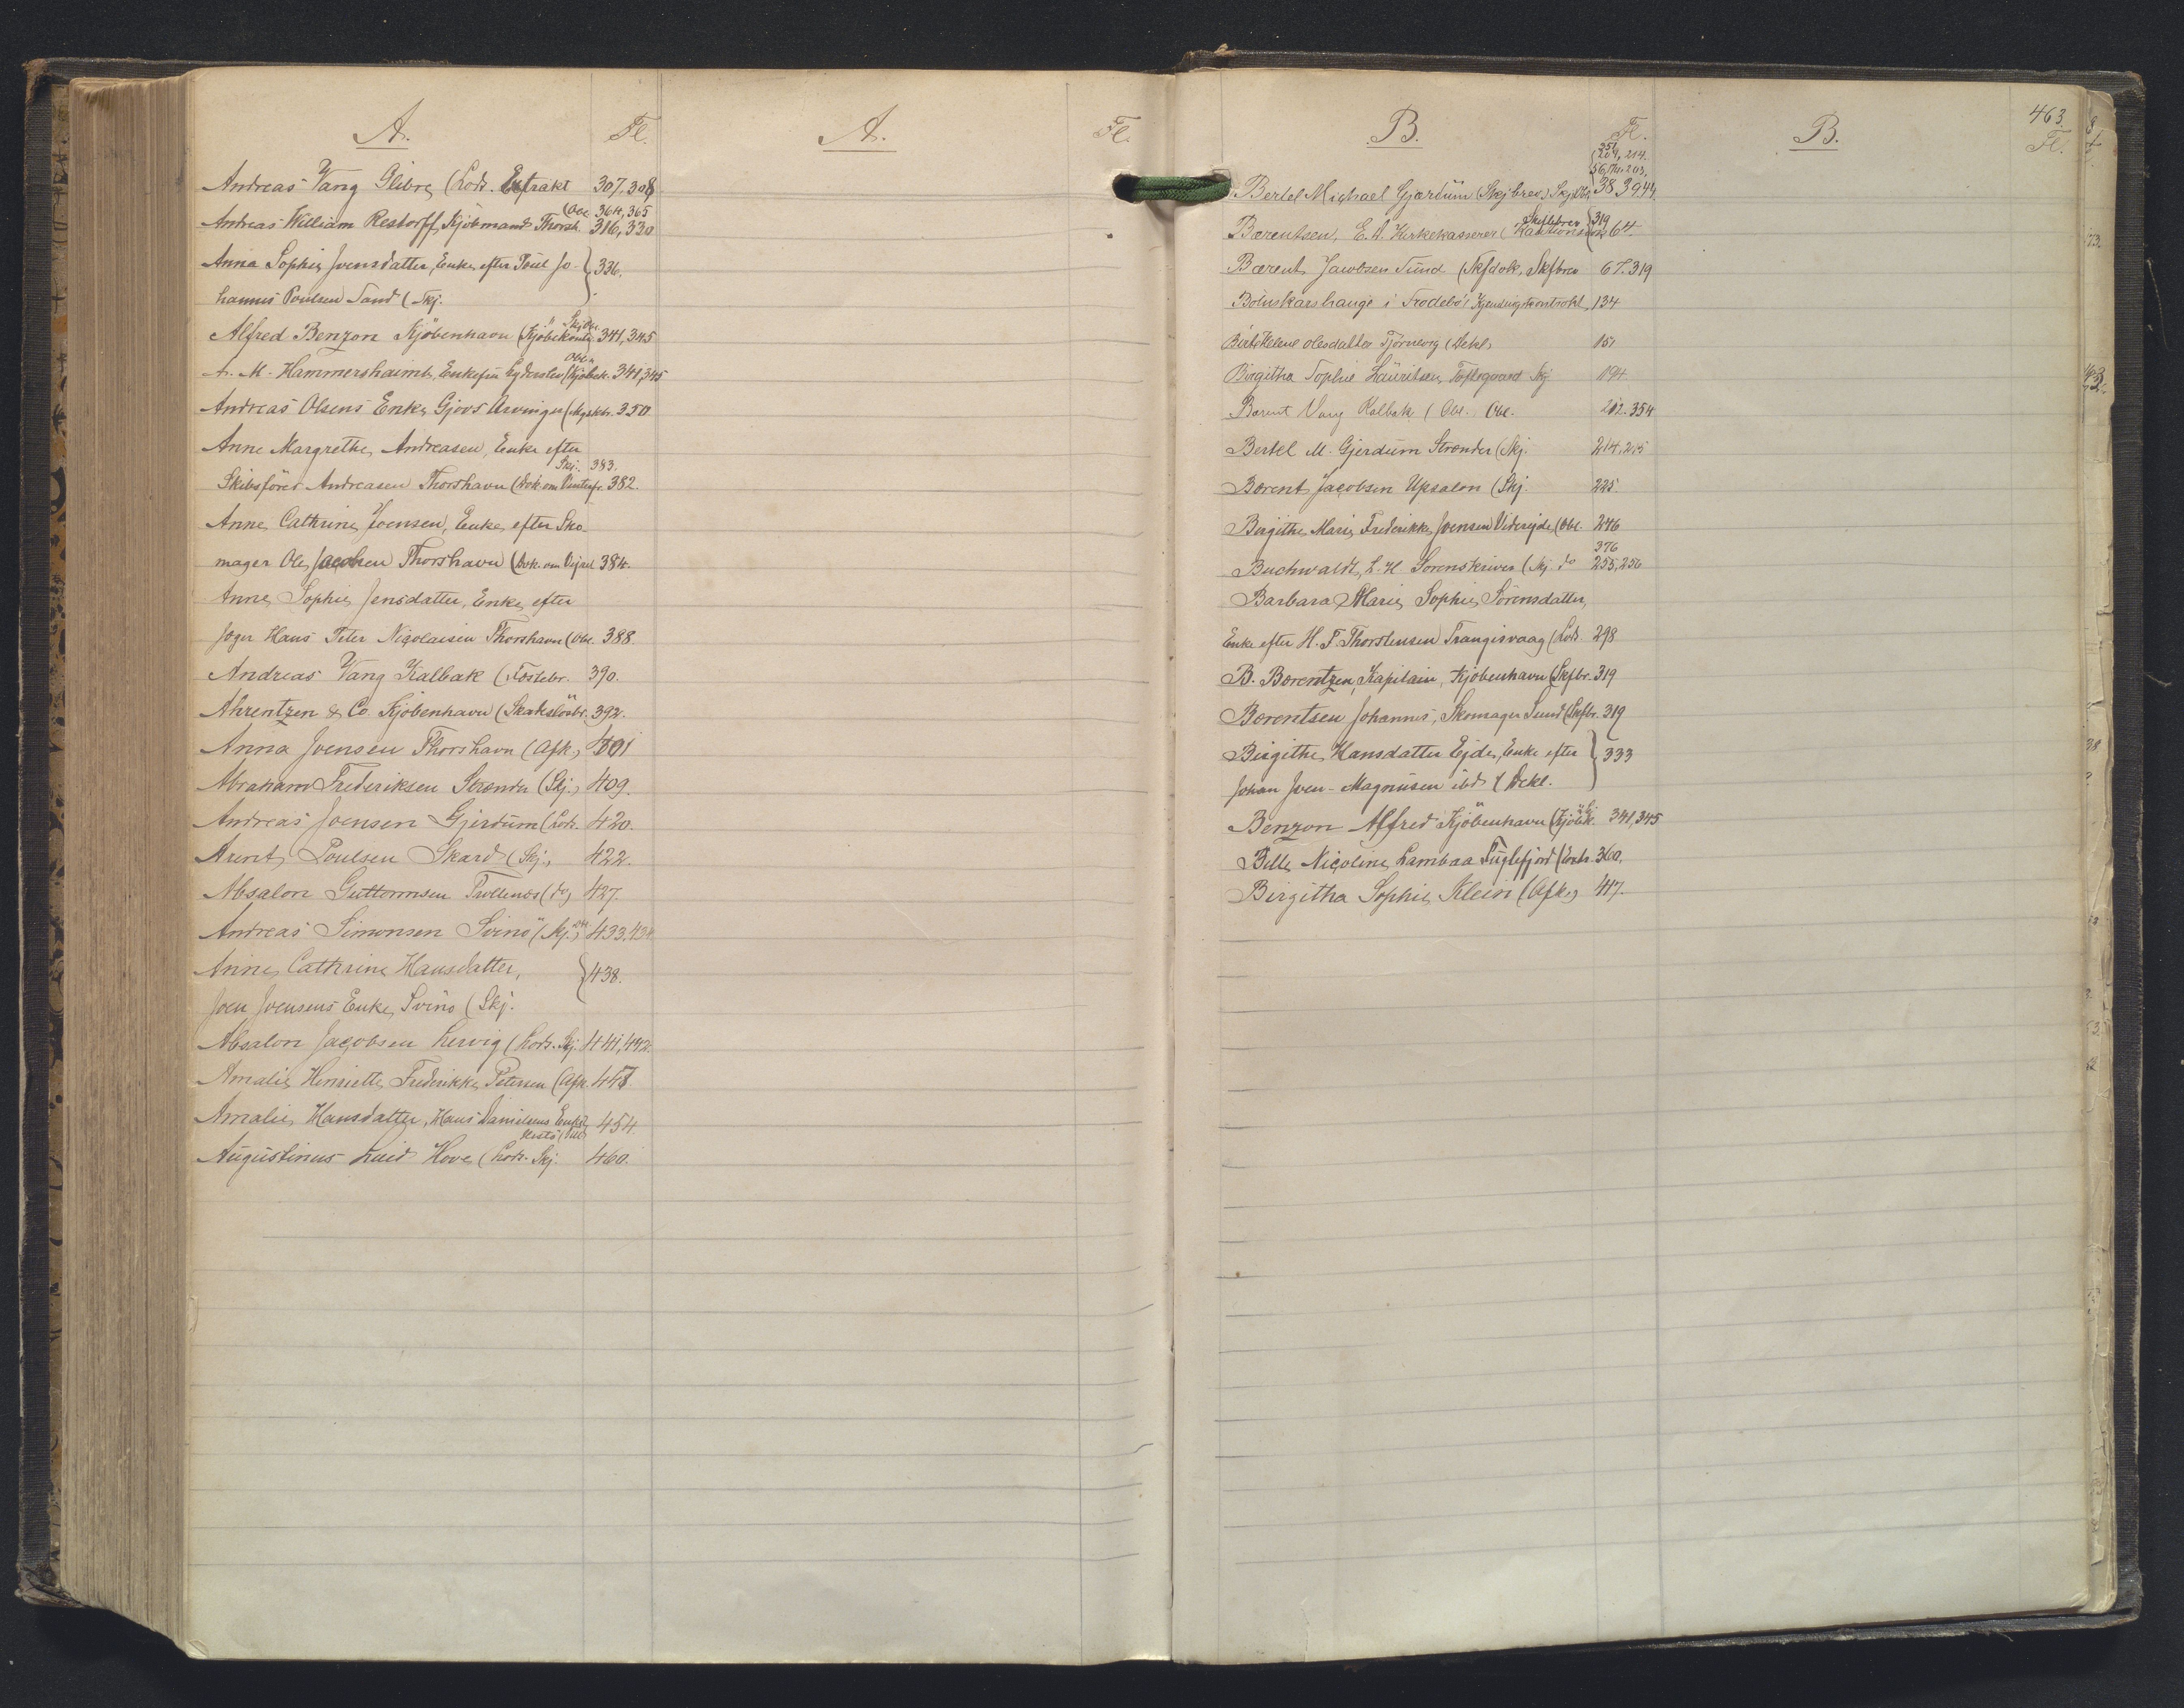 A. Fl. A. Fl.
Andreas Vang Glibre (Lods. Extrakt 307. 308
(Obl. 364, 365
Andreas William Restorff, Kjöbmand Thorsh. 316, 330
Anna Sophie Joensdatter, Enke efter Poul Jo- } 336.
hannis Poulsen Sand (Skj.
Alfred Benzon Kjöbenhavn (Kjöbekontr. 341, 345
A. M. Hammershaimb, Enkefru (Kjöbek. 341, 345
Andreas Olsens Enke, Gjovs Arvinger 350
Anne Margrethe Andreasen, Enke efter
Skj. 383.
Skibsförer Andreasen Thorshavn (Dok. om 382.
Anne Cathrine Joensen, Enke efter Sko-
mager Ole Jacobsen Thorshavn (Dok. om Vejret 384.
Anne Sophie Jensdatter, Enke efter
Joger Hans Peter Nicolaisen Thorshavn (Obl. 388
Andreas Vang Kalbak (Föstebr. 390.
Ahrentzen & Co. Kjöbenhavn (Skadeslösbr. 392.
Anna Joensen Thorshavn (Afk. 401
Abraham Frederiksen Strender (Skj. 409.
Andreas Joensen Gjerdum (Lods. 420.
Arent Poulsen Skard (Skj. 422.
Absalon Guttormsen Trollenös (do 427.
Andreas Simonsen Svinö (Skj. Obl. 433, 434
Anne Cathrine Hansdatter, } 438.
Joen Joensens Enke, Svinö (Skj.
Absalon Jacobsen Lervig (Lods. Skj. 441, 442
Amalie Henriette Frederikke Petersen (Afk. 447.
Amalie Hansdatter, Hans Danielsens Enke, 454.
Augustinus Luid Hove (Lods. Skj. 460.
463
B. Fl. B. Fl.
351
204, 214.
Bertel Michael Gjærdum (Skjbrev.) Skj. Obl. 38 39 44.
Skiftebrev 319
Bærentsen, E. A. Kirkekasserer (Kautionsdok 64.
Bærent Jacobsen Sund (Skfdok, Skfbrev 67. 319
Bolnskarshauge i Frodebö, 134
Birte Helene Olesdatter Tjörnevig (Dekl. 151
Birgitha Sophie Lauritsen Toftegaard Skj 194
Barent Vang Kalbak (Obl. Obl. 212. 354
Bertel M. Gjerdum Strender (Skj. 214, 215
Borent Jacobsen Upsalon (Skj. 225.
Birgithe Marie Frederikke Joensen Videreide (Obl. 246
376
Buchwaldt, L. H. Sorenskriver (Skj. do 255, 256
Barbara Marie Sophie Sörensdatter,
Enke efter H. F. Thorstensen Trangisvaag (Lods. 298
B. Borentzen, Kapitain, Kjöbenhavn (Skfbr. 319
Borentsen Johannes, Skomager Sund (Skfbr. 319
Birgithe Hansdatter Ejde, Enke efter } 333
Johan Joen-Magnusen ibd. (Dekl.
Benzon Alfred Kjöbenhavn (Kjöbek. 341, 345
Bille Nicoline Lambaa Fuglefjord (Extr. 360.
Birgitha Sophie Klein (Afk. 417.